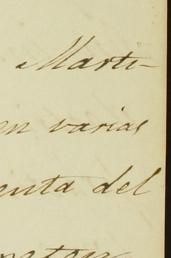 Marti-
en varias
enta del